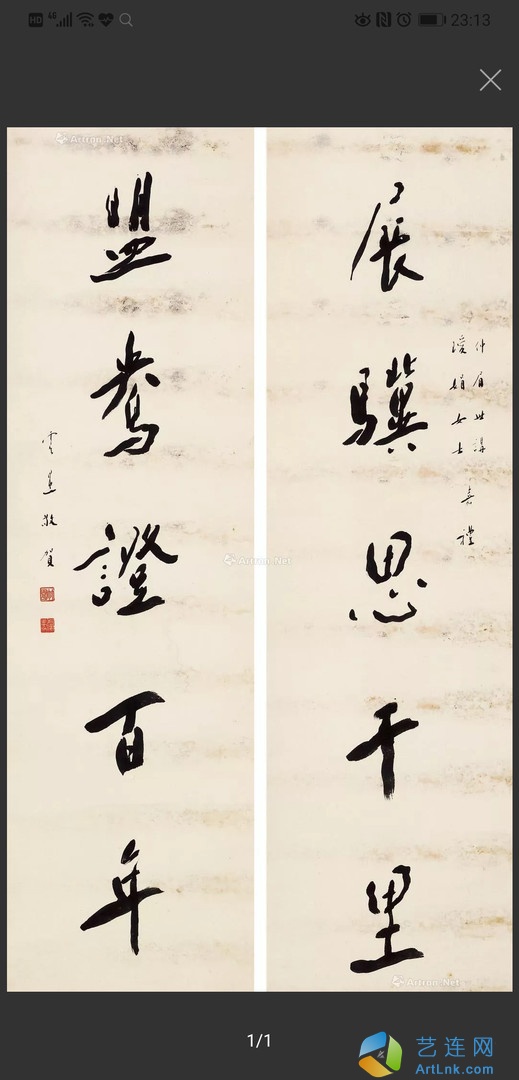 HD 4G 23:13
Artron.Net
展驥思千里
仲眉世講
娟女士
嘉禮
盟鴦證百年
敬賀
Artron.Net
Artron.Net
1/1
艺连网
ArtLnk.com